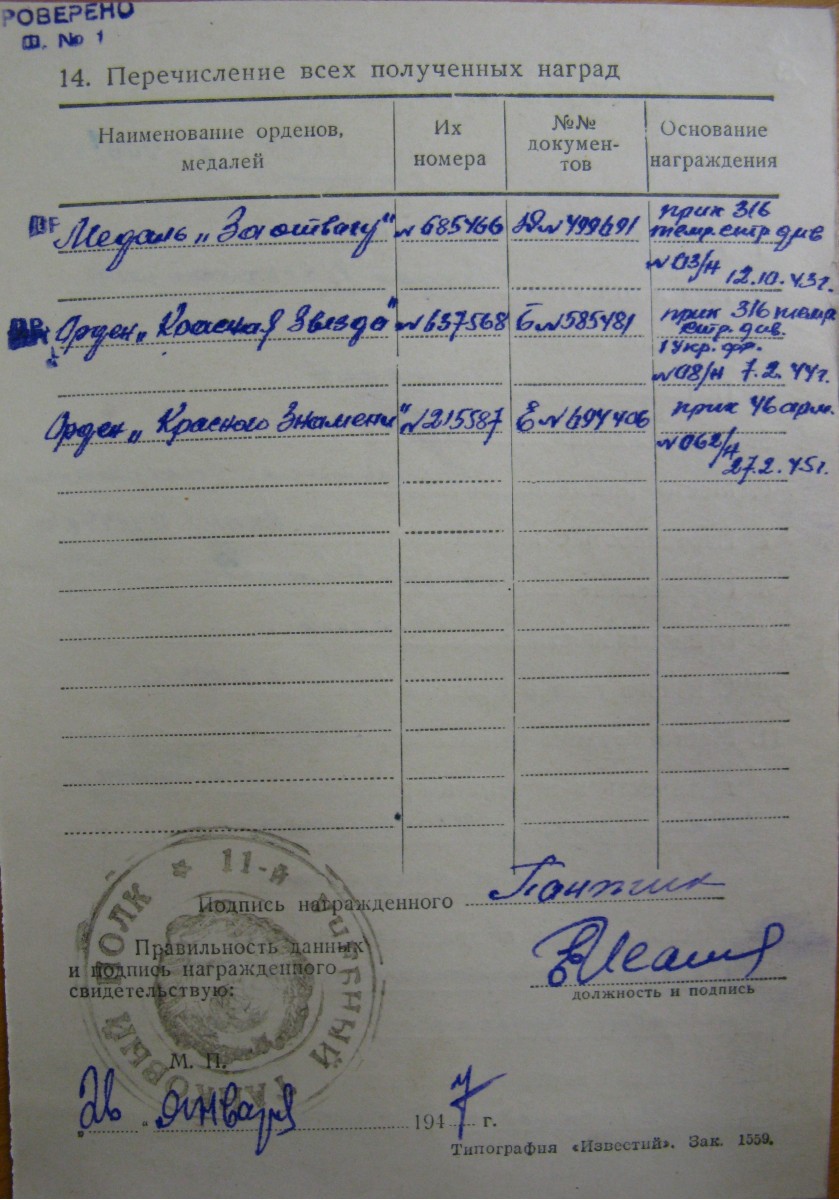 РОВЕРЕНО
Ш. № 1
14. Перечисление всех полученных наград
Наименование орденов, медалей
Их номера
№№ документов
Основание награждения
Медаль „За отвагу" № 685466 Д № 499691 прик 316
темр. стр див
№ 03/н 12.10.43г.
Орден „Красная Звезда" № 637568 Б № 585481 прик 316 темр.
стр. див.
1 укр. фр.
№ 08/н 7.2.44г.
Орден „Красного Знамени" № 215587 Е № 694406 прик 46 арм.
№ 062/н
27.2.45г.
11-й УЧЕБНЫЙ ТАНКОВЫЙ ПОЛК
Подпись награжденного
Правильность данных
и подпись награжденного
свидетельствую:
должность и подпись
М. П.
„26" января 1947 г.
Типография «Известий». Зак. 1559.